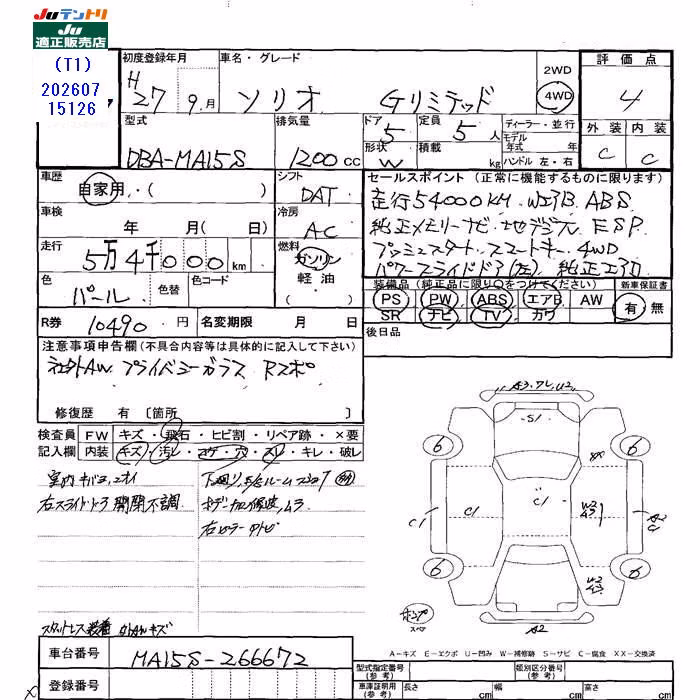 Juテントリ
Ju
適正販売店
(T1)
202607
15126
初度登録年月
H
27 9.月
車名・グレード
ソリオ Gリミテッド
2WD
4WD
評価点
4
外装 内装
C C
型式
DBA-MA15S
排気量
1200 cc
ドア 5
形状 W
定員 5 人
積載 kg
ディーラー・並行
モデル
年式 年
ハンドル 左・右
車歴
自家用・( )
シフト
DAT
車検
年 月( 日)
冷房
AC
走行
5万4千000km
燃料
ガソリン
軽油
色
パール
色替
色コード
R券 10490 円
名変期限 月 日
セールスポイント(正常に機能するものに限ります)
走行54000KM. WエアB. ABS
純正メモリーナビ・地デジTV ESP
プッシュスタート・スマートキー. 4WD
パワースライドドア(左) 純正エアロ
装備品(純正品に限り○をつけてください)
PS PW ABS エアB AW
SR ナビ TV カワ
新車保証書
有・無
後日品
注意事項申告欄(不具合内容等は具体的に記入して下さい)
社外AW プライバシーガラス Rスポ
修復歴 有〔箇所
検査員
記入欄
FW キズ・飛石・ヒビ割・リペア跡・×要
内装 キズ・汚レ・コゲ・穴・スレ・キレ・破レ
室内キバミ、ニオイ
右スライドドア開閉不調
下廻り、E/Gルームサビ
ボデー加修波、ムラ
右ピラーウトビ
スタットレス装着 外AWキズ
A3.ワレ,U2
S1
6
6
C1
C1
C1
W2
A3
A2
C1
6
6
W2
A3
ポンプ
スペア
A2
A-キズ E-エクボ U-凹み W-補修跡 S-サビ C-腐食 XX-交換済
車台番号
MA15S-266672
登録番号
型式指定番号
(参考)
類別区分番号
(参考)
車庫証明用
(参考)
長さ cm
幅 cm
高さ cm